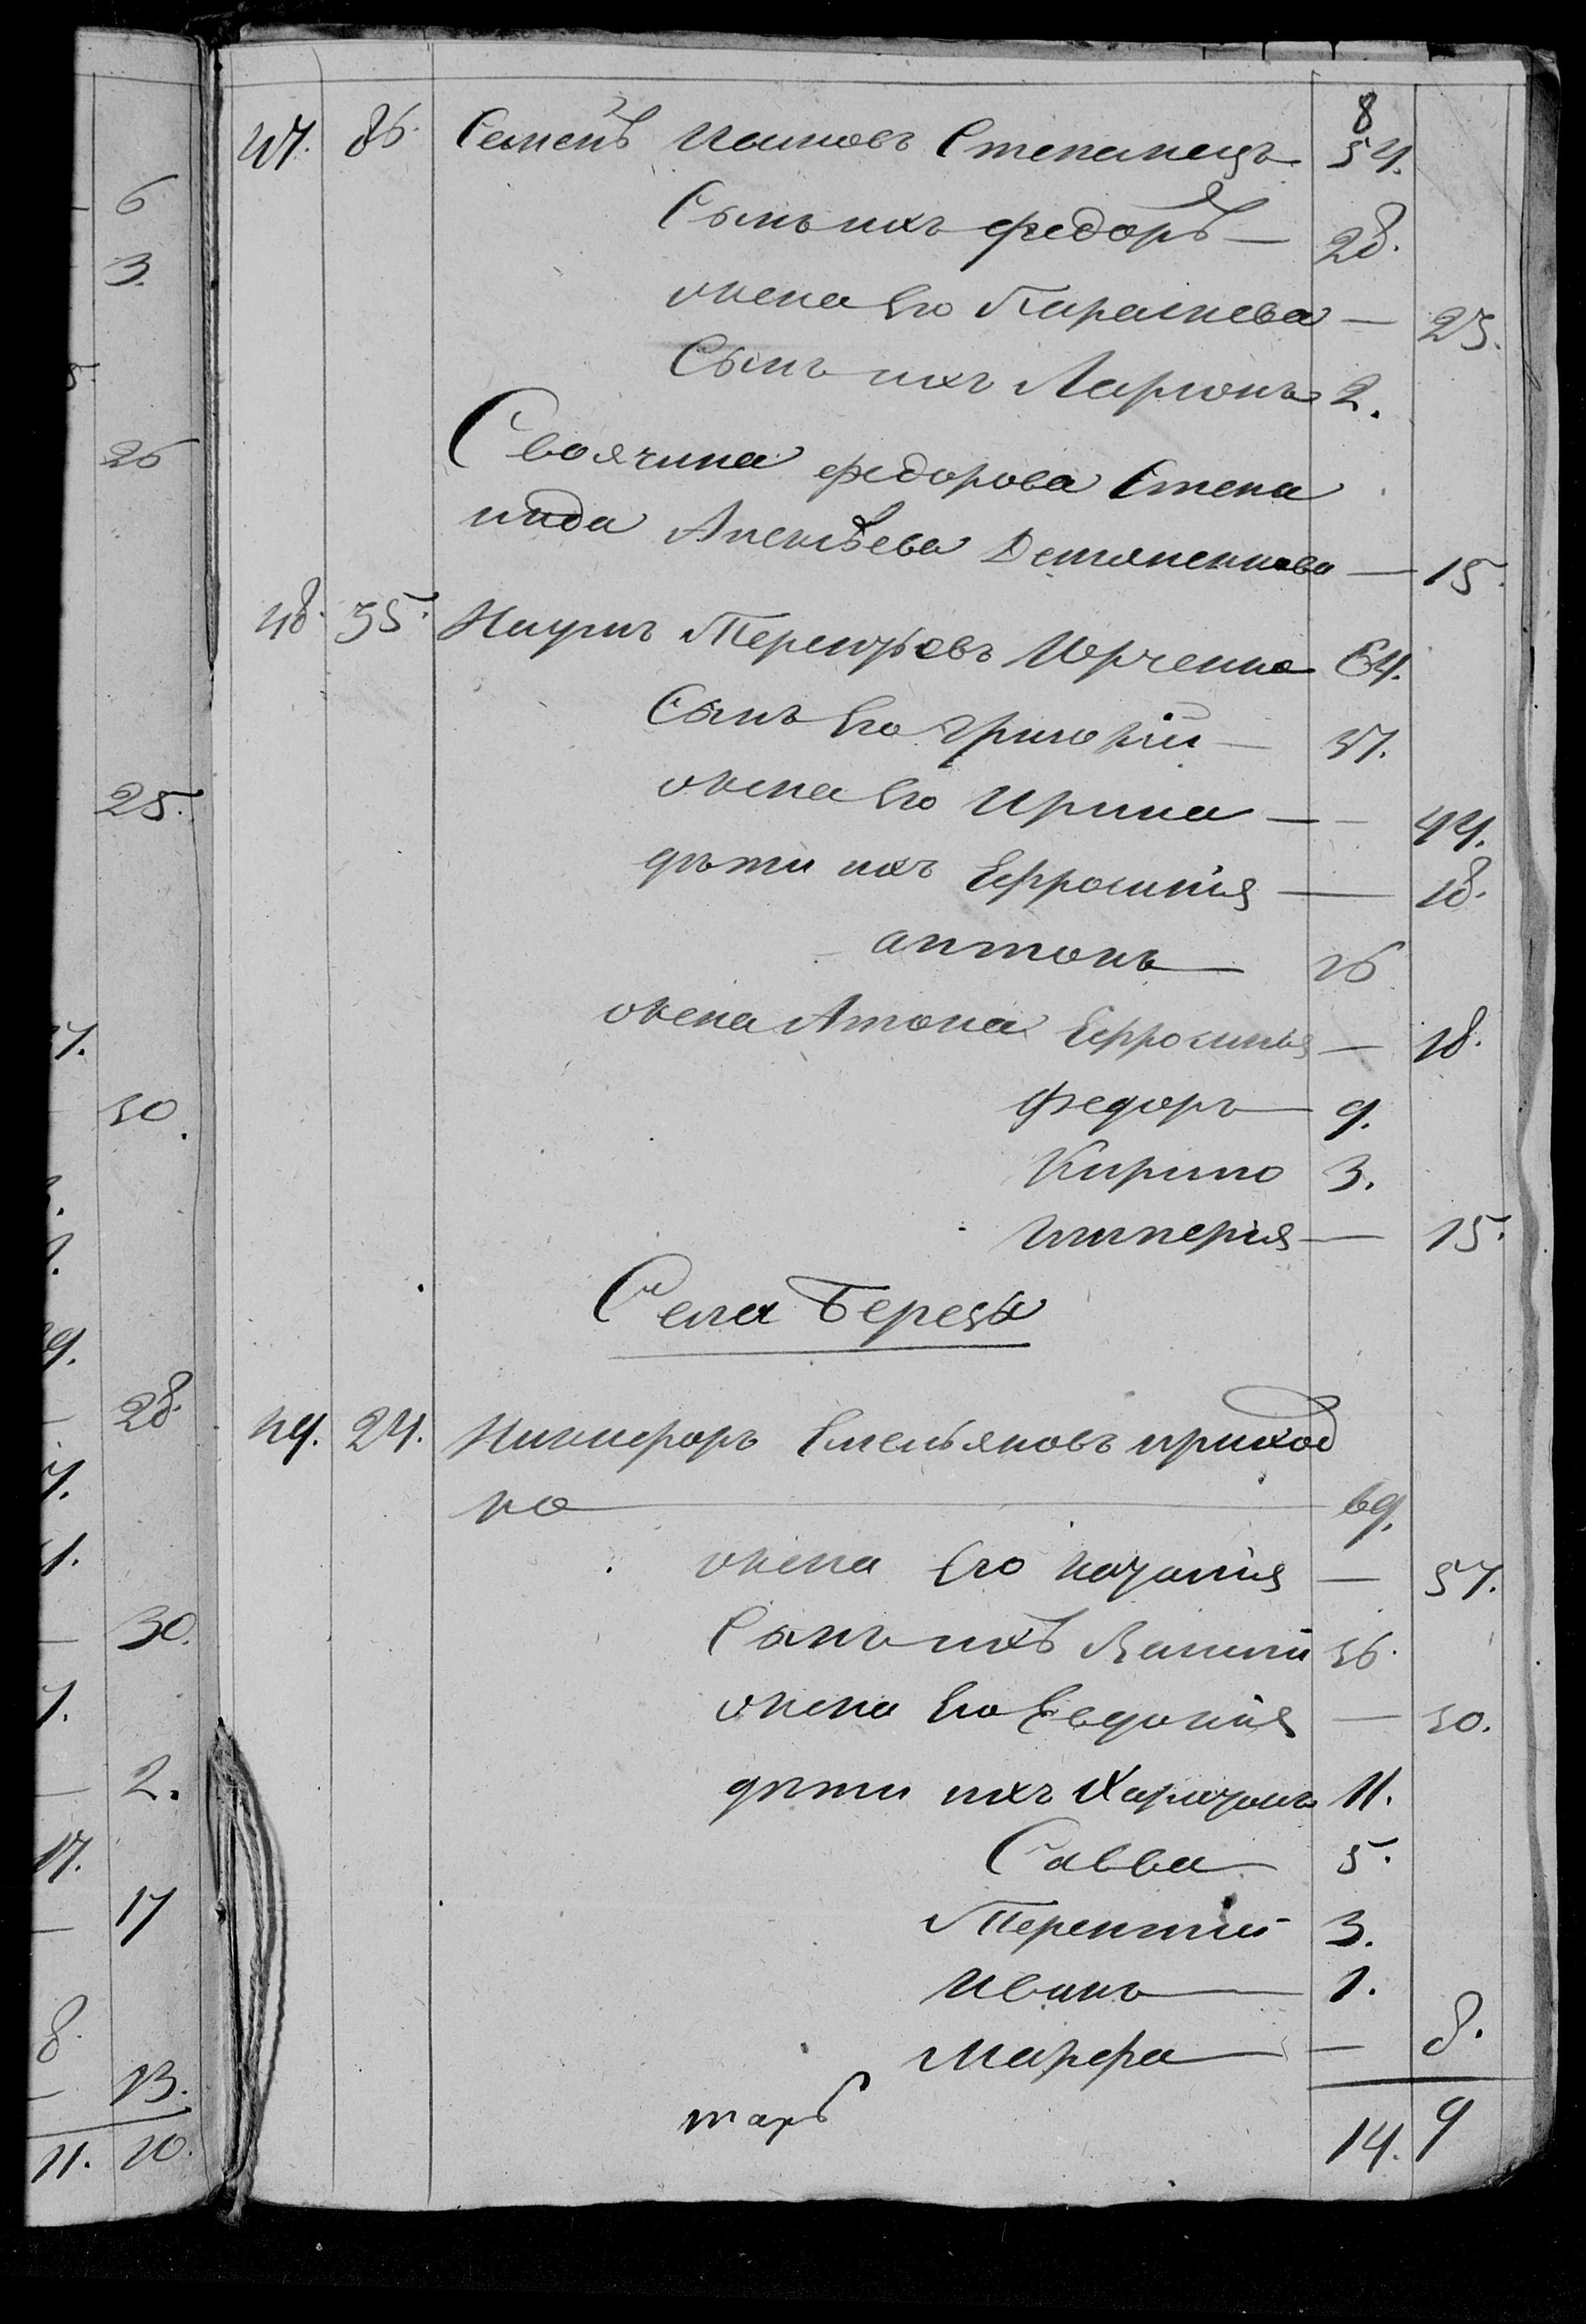 8
47. 86. Семенъ Исаковъ Степанецъ 54.
Сынъ ихъ Федоръ — 28.
жена Его Параскева — 25.
Сынъ ихъ Ларіонъ 2.
Своячина Федорова Степа
нида Алексѣева — 15.
48. 35. Наумъ Юрченко 64.
Сынъ Его Григорій — 47.
жена Его Ирина — 44.
дѣти ихъ Ефросинія — 18.
антонъ — 26
жена Антона Ефросинья — 18.
Федоръ — 9.
Кирило 3.
Гликерія — 15.
Села Березы
49. 24. Никифоръ Емельяновъ приход
ко — 69.
жена Его — 57.
Сынъ ихъ 36.
жена Его Евдокія — 30.
дѣти ихъ 11.
Савва 5.
Терентій 3.
Иванъ — 1.
Марфа — 8.
14. 9
6
3.
26
25.
30.
28
7.
30.
7.
2.
17.
17
8.
13.
11. 10.